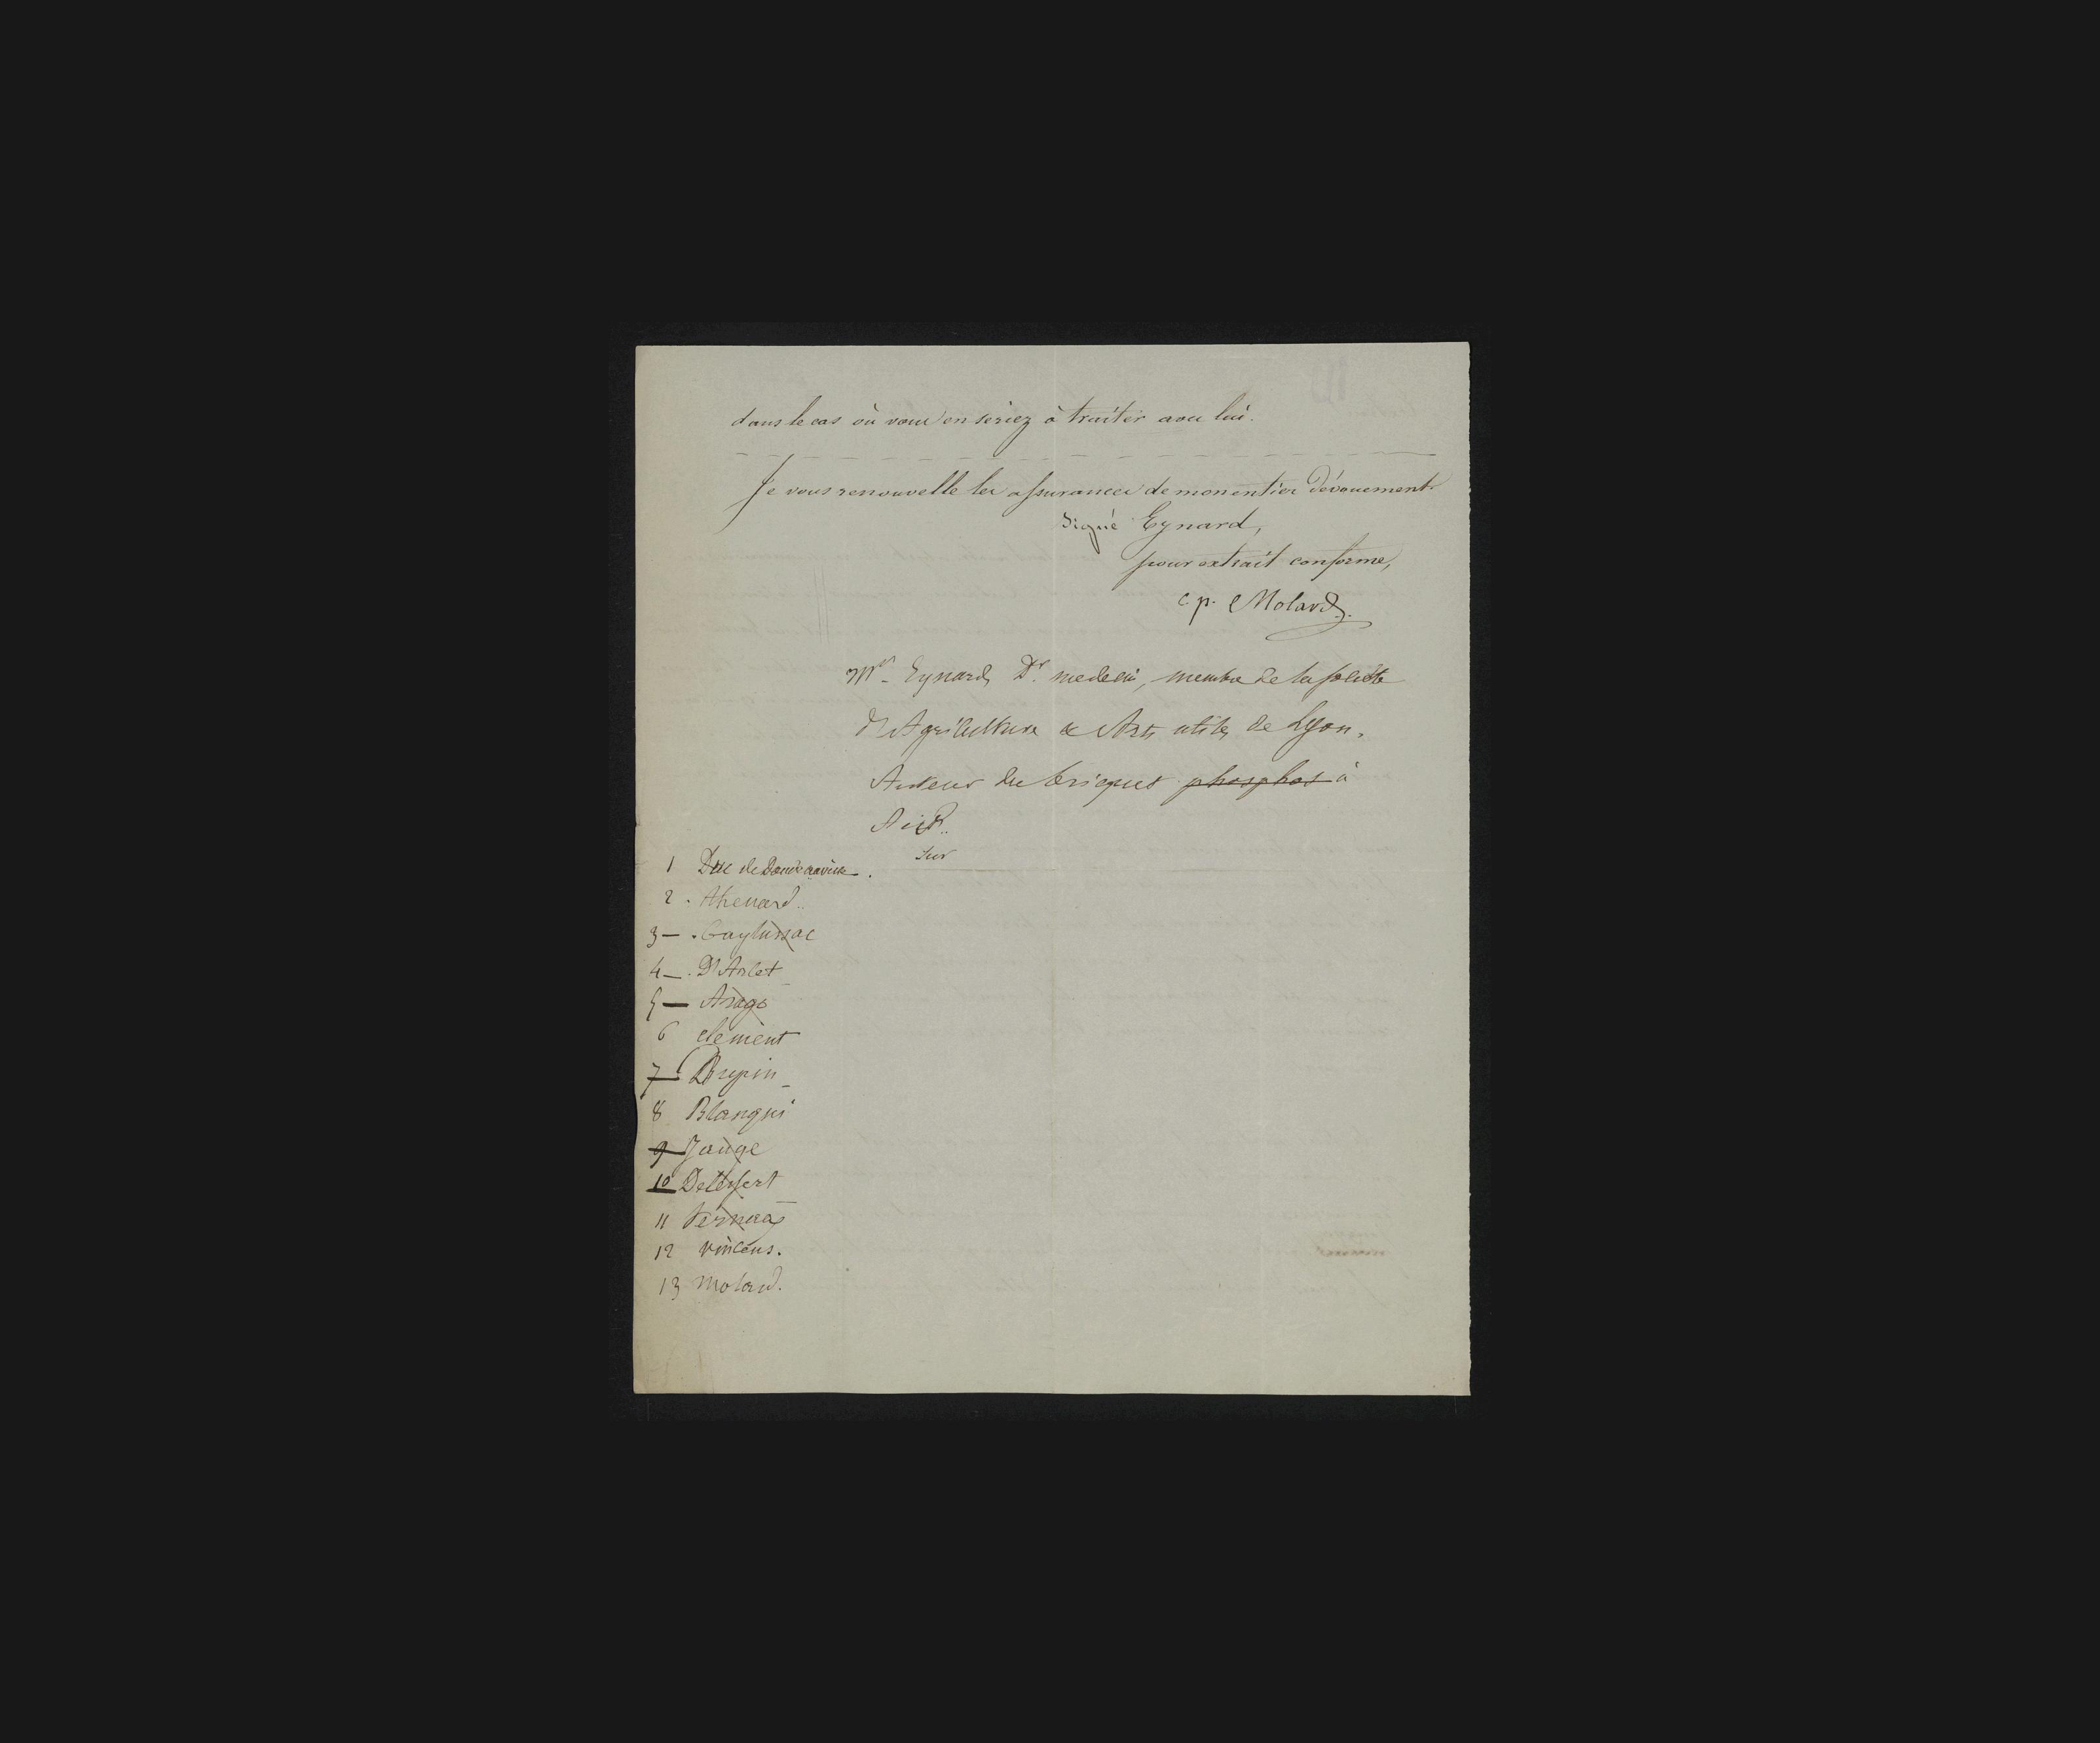 dans le cas où vous en seriez à traiter avec lui.
Je vous renouvelle les assurances de mon entier dévouement.
Signé Eynard,
pour extrait conforme,
c. p. Molard
Mr. Eynard, Dr. medecin, membre de la société
d'Agriculture & Arts utiles de Lyon.
Auteur du briquet phosphos à
Air.
Sur
1 Duc de Doudeauville.
2. Thenard..
3 — . Gaylussac
4 — . D'Arcet
5 — Arago
6 clément
7 — Dupin
8 Blanqui
9 Jauge
10 Delessert
11 Vernes
12 Vincens.
13 Molard.